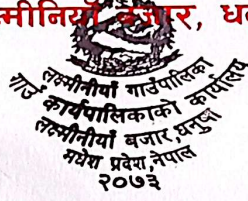 क्ष्मीनियाँ बजार, ध
लक्ष्मीनीयाँ गाउँपालिका
गाउँ कार्यपालिकाको कार्यालय
लक्ष्मीनीयाँ बजार, धनुषा
मधेश प्रदेश, नेपाल
२०७३